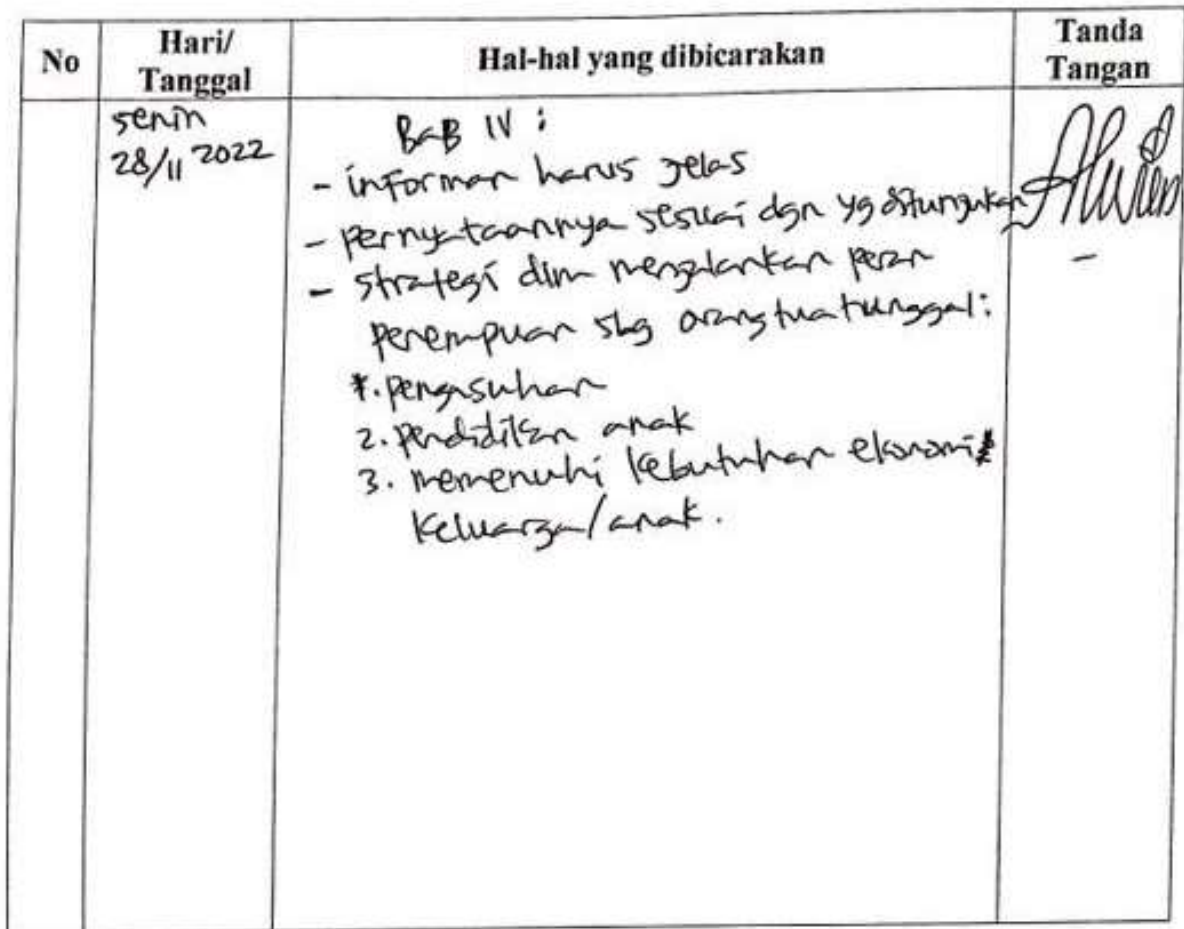 No
Hari/
Tanggal
Hal-hal yang dibicarakan
Tanda
Tangan
senin
28/11 2022
BAB IV :
- informan harus jelas
- pernyataannya sesuai dgn yg ditunjukan
- strategi dlm menjalankan peran
perempuan sbg orang tua tunggal:
1. pengasuhan
2. pendidikan anak
3. memenuhi kebutuhan ekonomi
keluarga/anak.